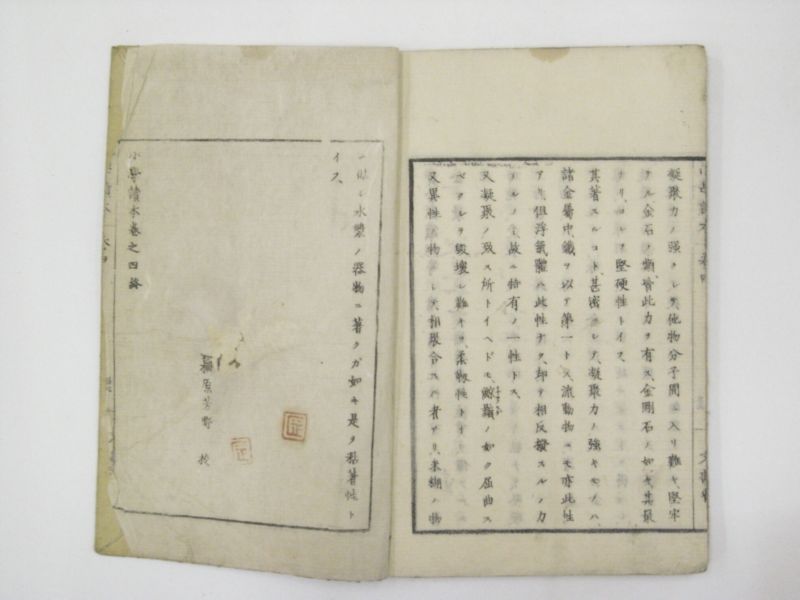 凝聚力ノ强クシテ他物分子間ニ入リ難キ堅牢
ナル金石ノ類皆此力ヲ有ス金剛石ノ如キ其最
ナリ、コレヲ堅硬性トイス
其著スルコト、甚密ニシテ、凝聚力ノ強キモノハ、
諸金屬中鐵ヲ以テ第一トス流動物ニモ亦此性
アリ但浮氣體ハ此性ナク、却テ相反撥スルノ力
アルノミ、故ニ特有ノ一性トス、
又凝聚ノ致ス所トイヘドモ、鯨鬚ノ如ク屈曲ス
ベクシテ毀壞シ難キヲ柔靱性トイ
又異性ノ物ニシテ相聚合スル者アリ、米糊ノ物
ニ 水漿ノ器物ニ著クガ如キ是ヲ黏著性ト
イス
小學讀本卷之四終
稲原芳野 校